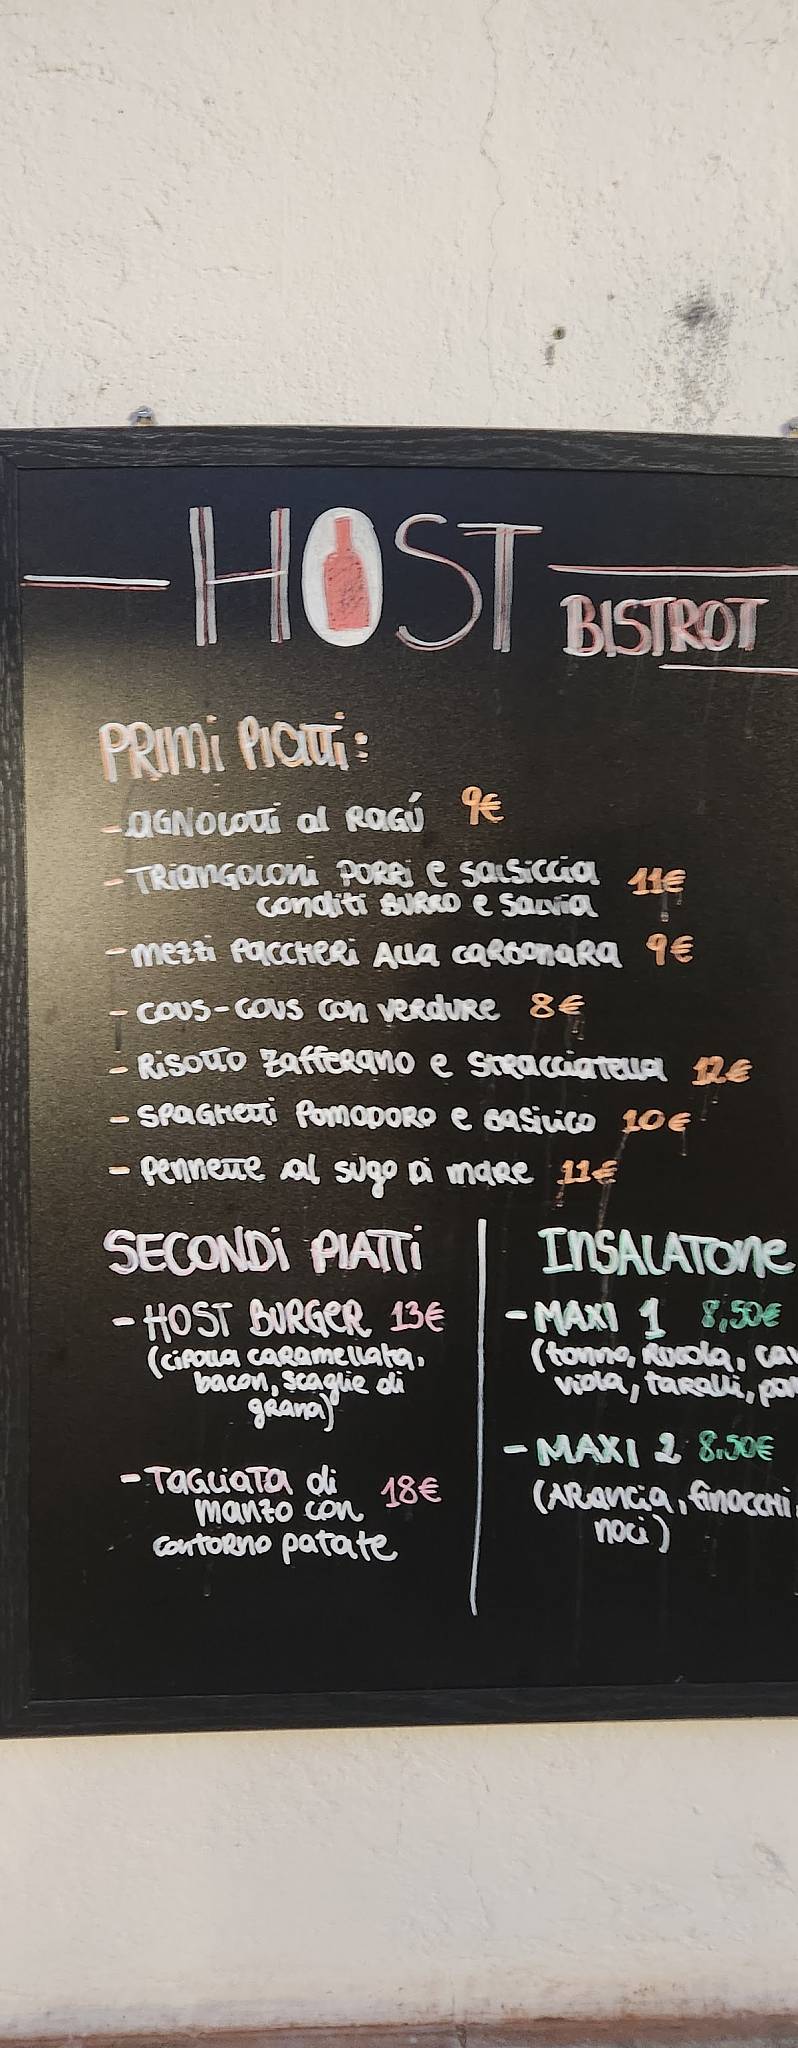 HOST
BISTROT
PRIMI PIATTI:
- AGNOLOTTI al RAGÚ 9€
- TRIANGOLONI PORRI e SALSICCIA 11€
conditi BURRO e SALVIA
- MEZZI PACCHERI ALLA CARBONARA 9€
- COUS-COUS con VERDURE 8€
- RISOTTO ZAFFERANO e STRACCIATELLA 12€
- SPAGHETTI POMODORO e BASILICO 10€
- PENNETTE al SUGO DI MARE 11€
SECONDI PIATTI
- HOST BURGER 13€
(CIPOLLA CARAMELLATA,
bacon, scaglie di
GRANA)
- TAGLIATA di 18€
MANZO CON
CONTORNO patate
INSALATONE
- MAXI 1 8,50€
(tonno, RUCOLA,
viola, TARALLI,
- MAXI 2 8,50€
(ARANCIA, FINOCCHI,
noci)